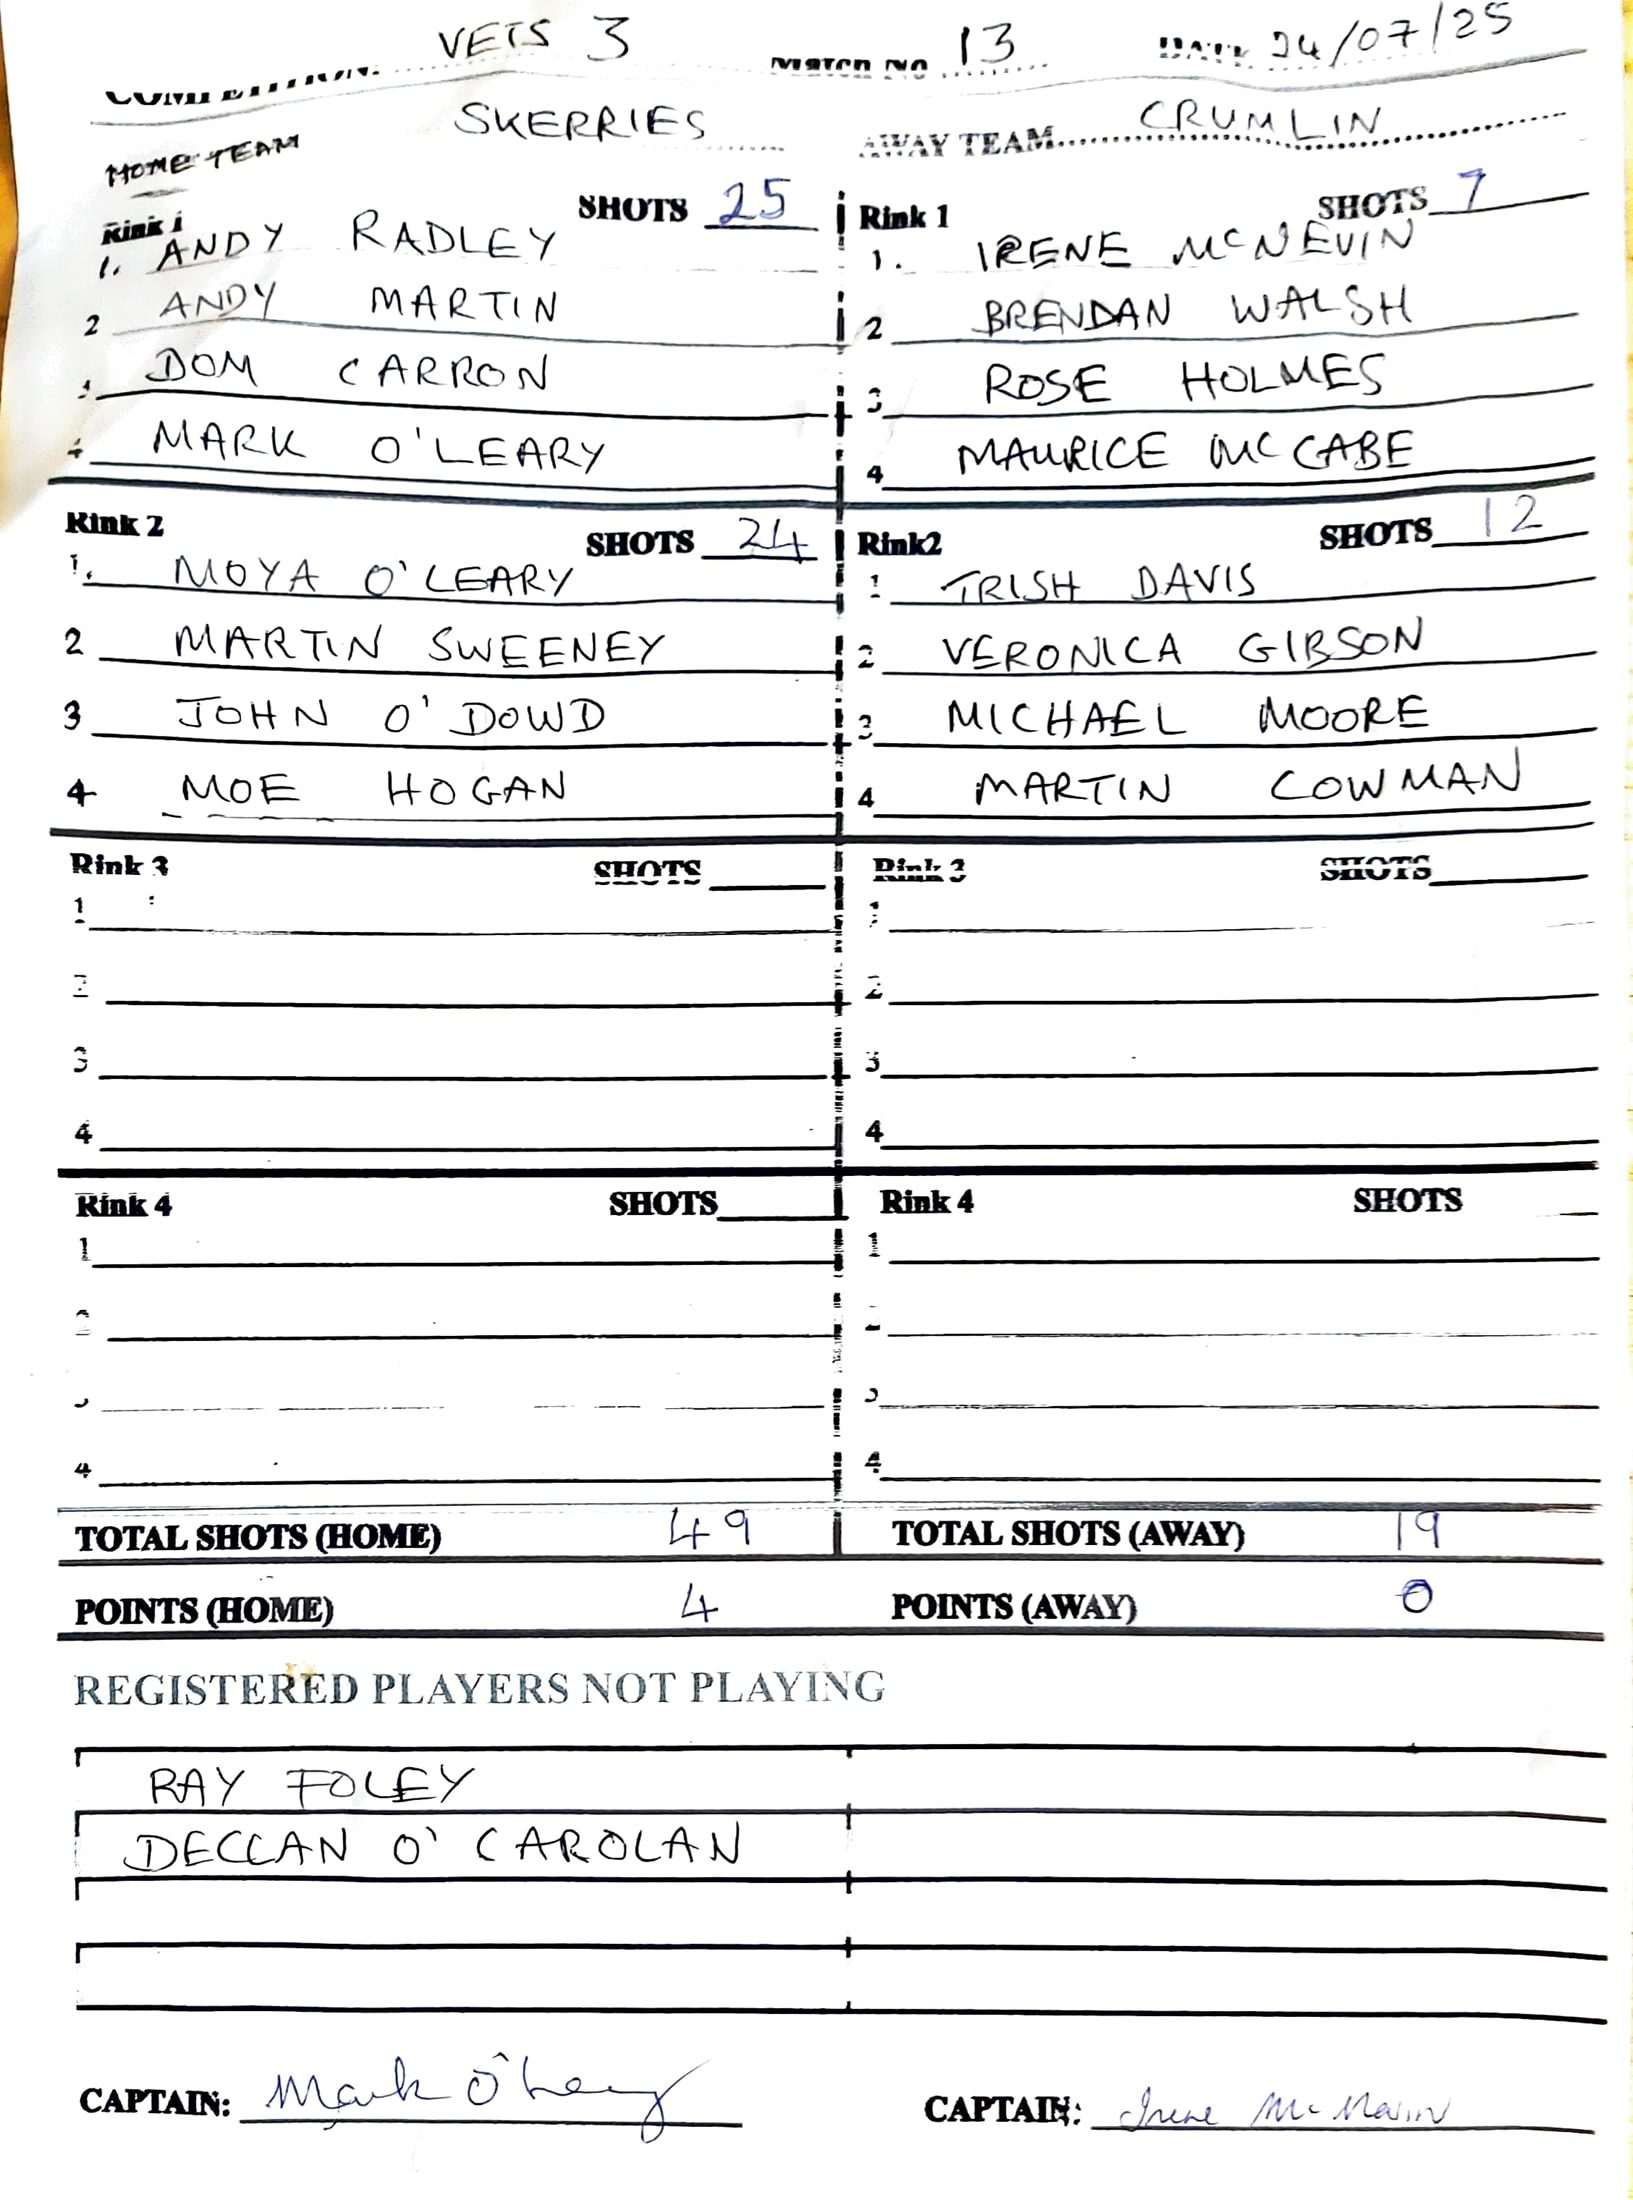 COMPETITION: VETS 3 Match No 13 DATE 24/07/25
HOME TEAM SKERRIES AWAY TEAM CRUMLIN
Rink 1 SHOTS 25 Rink 1 SHOTS 7
1. ANDY RADLEY 1. IRENE McNEVIN
2 ANDY MARTIN 2 BRENDAN WALSH
3 DOM CARRON 3 ROSE HOLMES
4 MARK O'LEARY 4 MAURICE McCABE
Rink 2 SHOTS 24 Rink2 SHOTS 12
1. MOYA O'LEARY 1 TRISH DAVIS
2 MARTIN SWEENEY 2 VERONICA GIBSON
3 JOHN O'DOWD 3 MICHAEL MOORE
4 MOE HOGAN 4 MARTIN COWMAN
Rink 3 SHOTS Rink 3 SHOTS
1 1
2 2
3 3
4 4
Rink 4 SHOTS Rink 4 SHOTS
1 1
2 2
3 3
4 4
TOTAL SHOTS (HOME) 49 TOTAL SHOTS (AWAY) 19
POINTS (HOME) 4 POINTS (AWAY) 0
REGISTERED PLAYERS NOT PLAYING
RAY FOLEY
DECLAN O'CAROLAN
CAPTAIN: Mark O'Leary CAPTAIN: Irene McNevin